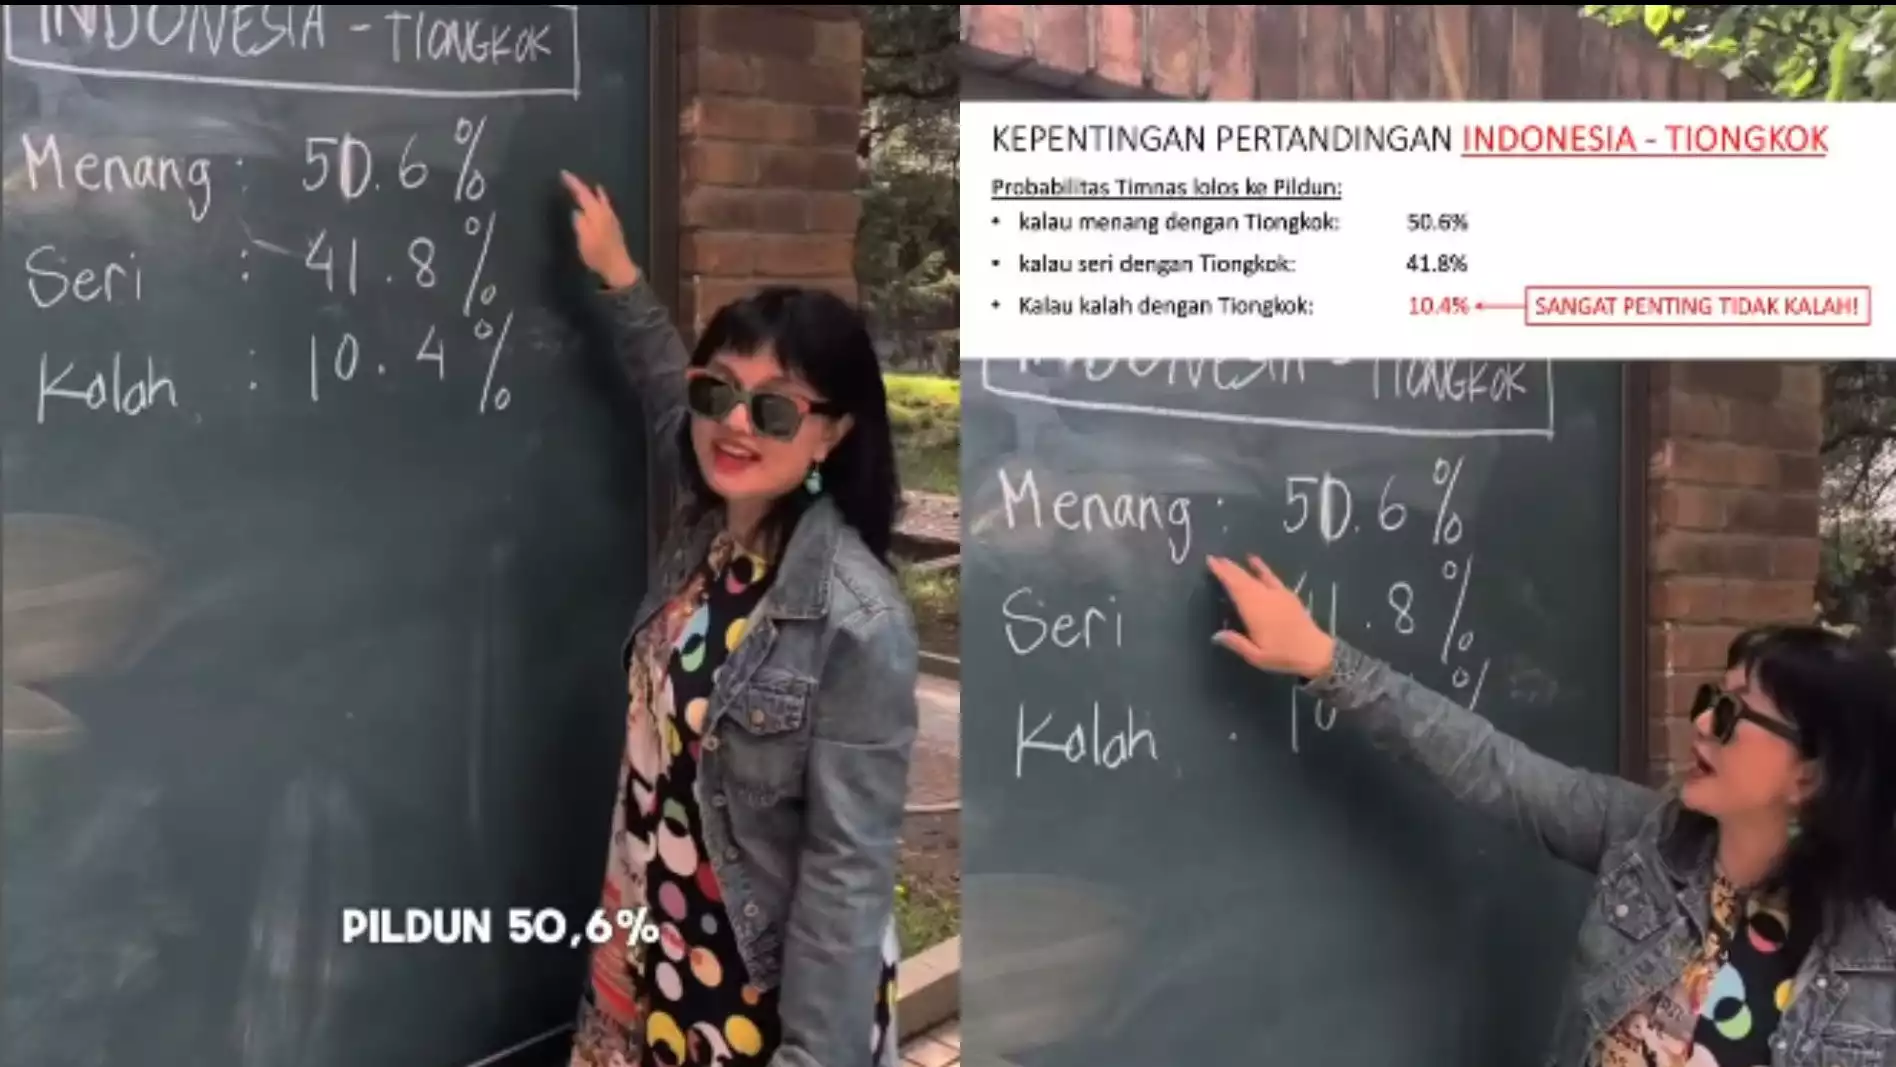 INDONESIA - TIONGKOK
Menang : 50.6%
Seri : 41.8%
Kalah : 10.4%
PILDUN 50,6%
KEPENTINGAN PERTANDINGAN INDONESIA - TIONGKOK
Probabilitas Timnas lolos ke Pildun:
• kalau menang dengan Tiongkok: 50.6%
• kalau seri dengan Tiongkok: 41.8%
• Kalau kalah dengan Tiongkok: 10.4% SANGAT PENTING TIDAK KALAH!
INDONESIA - TIONGKOK
Menang : 50.6%
Seri : 41.8%
Kalah : 10 %